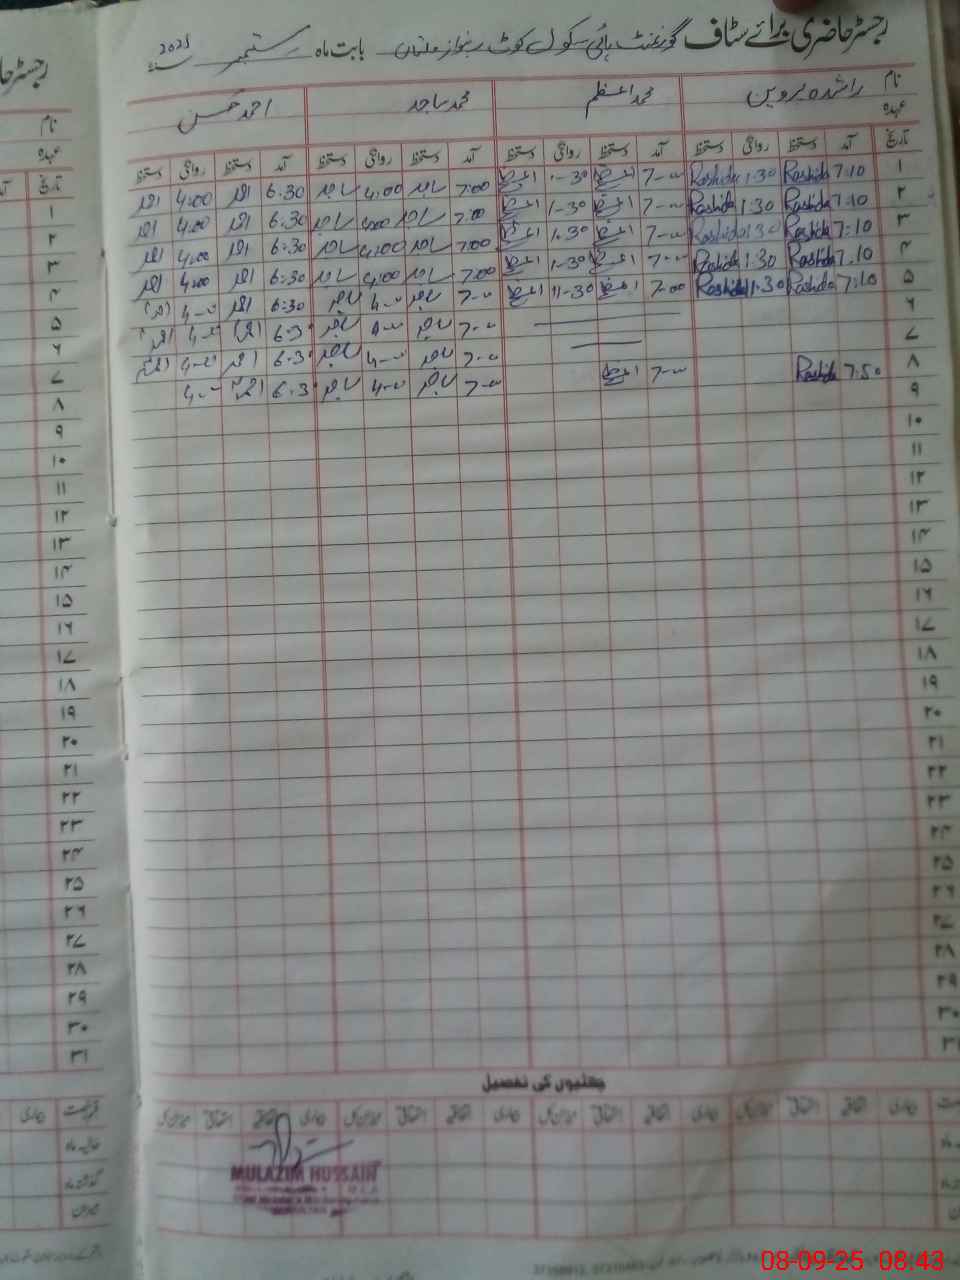 رجسٹر حاضری برائے سٹاف گورنمنٹ ہائی سکول کوٹ ربنواز ملتان بابت ماہ ستمبر 2025
نام راشدہ پروین محمد اعظم محمد ساجد احمد حسن
عہدہ
تاریخ آمد دستخط روانگی دستخط آمد دستخط روانگی دستخط آمد دستخط روانگی دستخط آمد دستخط روانگی دستخط
۱ 7.10 Rashida 1.30 Rashida 7-00 اعظم 1-30 اعظم 7.00 ساجد 4.00 ساجد 6.30 احمد 4.00 احمد
۲ 7.10 Rashida 1.30 Rashida 7-00 اعظم 1-30 اعظم 7.00 ساجد 4.00 ساجد 6.30 احمد 4.00 احمد
۳ 7:10 Rashida 1.30 Rashida 7-00 اعظم 1.30 اعظم 7.00 ساجد 4.00 ساجد 6.30 احمد 4.00 احمد
۴ 7.10 Rashida 1.30 Rashida 7-00 اعظم 1-30 اعظم 7.00 ساجد 4.00 ساجد 6.30 احمد 4.00 احمد
۵ 7:10 Rashida 1.30 Rashida 7.00 اعظم 11-30 اعظم 7-00 ساجد 4-00 ساجد 6.30 احمد 4-00 احمد
۶ 7-00 ساجد 4-00 ساجد 6.30 احمد 4-00 احمد
۷ 7-00 ساجد 4-00 ساجد 6.30 احمد 4-00 احمد
۸ 7:50 Rashida 7-00 اعظم 7-00 ساجد 4-00 ساجد 6.30 احمد 4-00
۹
۱۰
۱۱
۱۲
۱۳
۱۴
۱۵
۱۶
۱۷
۱۸
۱۹
۲۰
۲۱
۲۲
۲۳
۲۴
۲۵
۲۶
۲۷
۲۸
۲۹
۳۰
۳۱
چھٹیوں کی تفصیل
MULAZIM HUSSAIN
رجسٹر حا
نام
عہدہ
تاریخ
۱
۲
۳
۴
۵
۶
۷
۸
۹
۱۰
۱۱
۱۲
۱۳
۱۴
۱۵
۱۶
۱۷
۱۸
۱۹
۲۰
۲۱
۲۲
۲۳
۲۴
۲۵
۲۶
۲۷
۲۸
۲۹
۳۰
۳۱
08-09-25 08:43